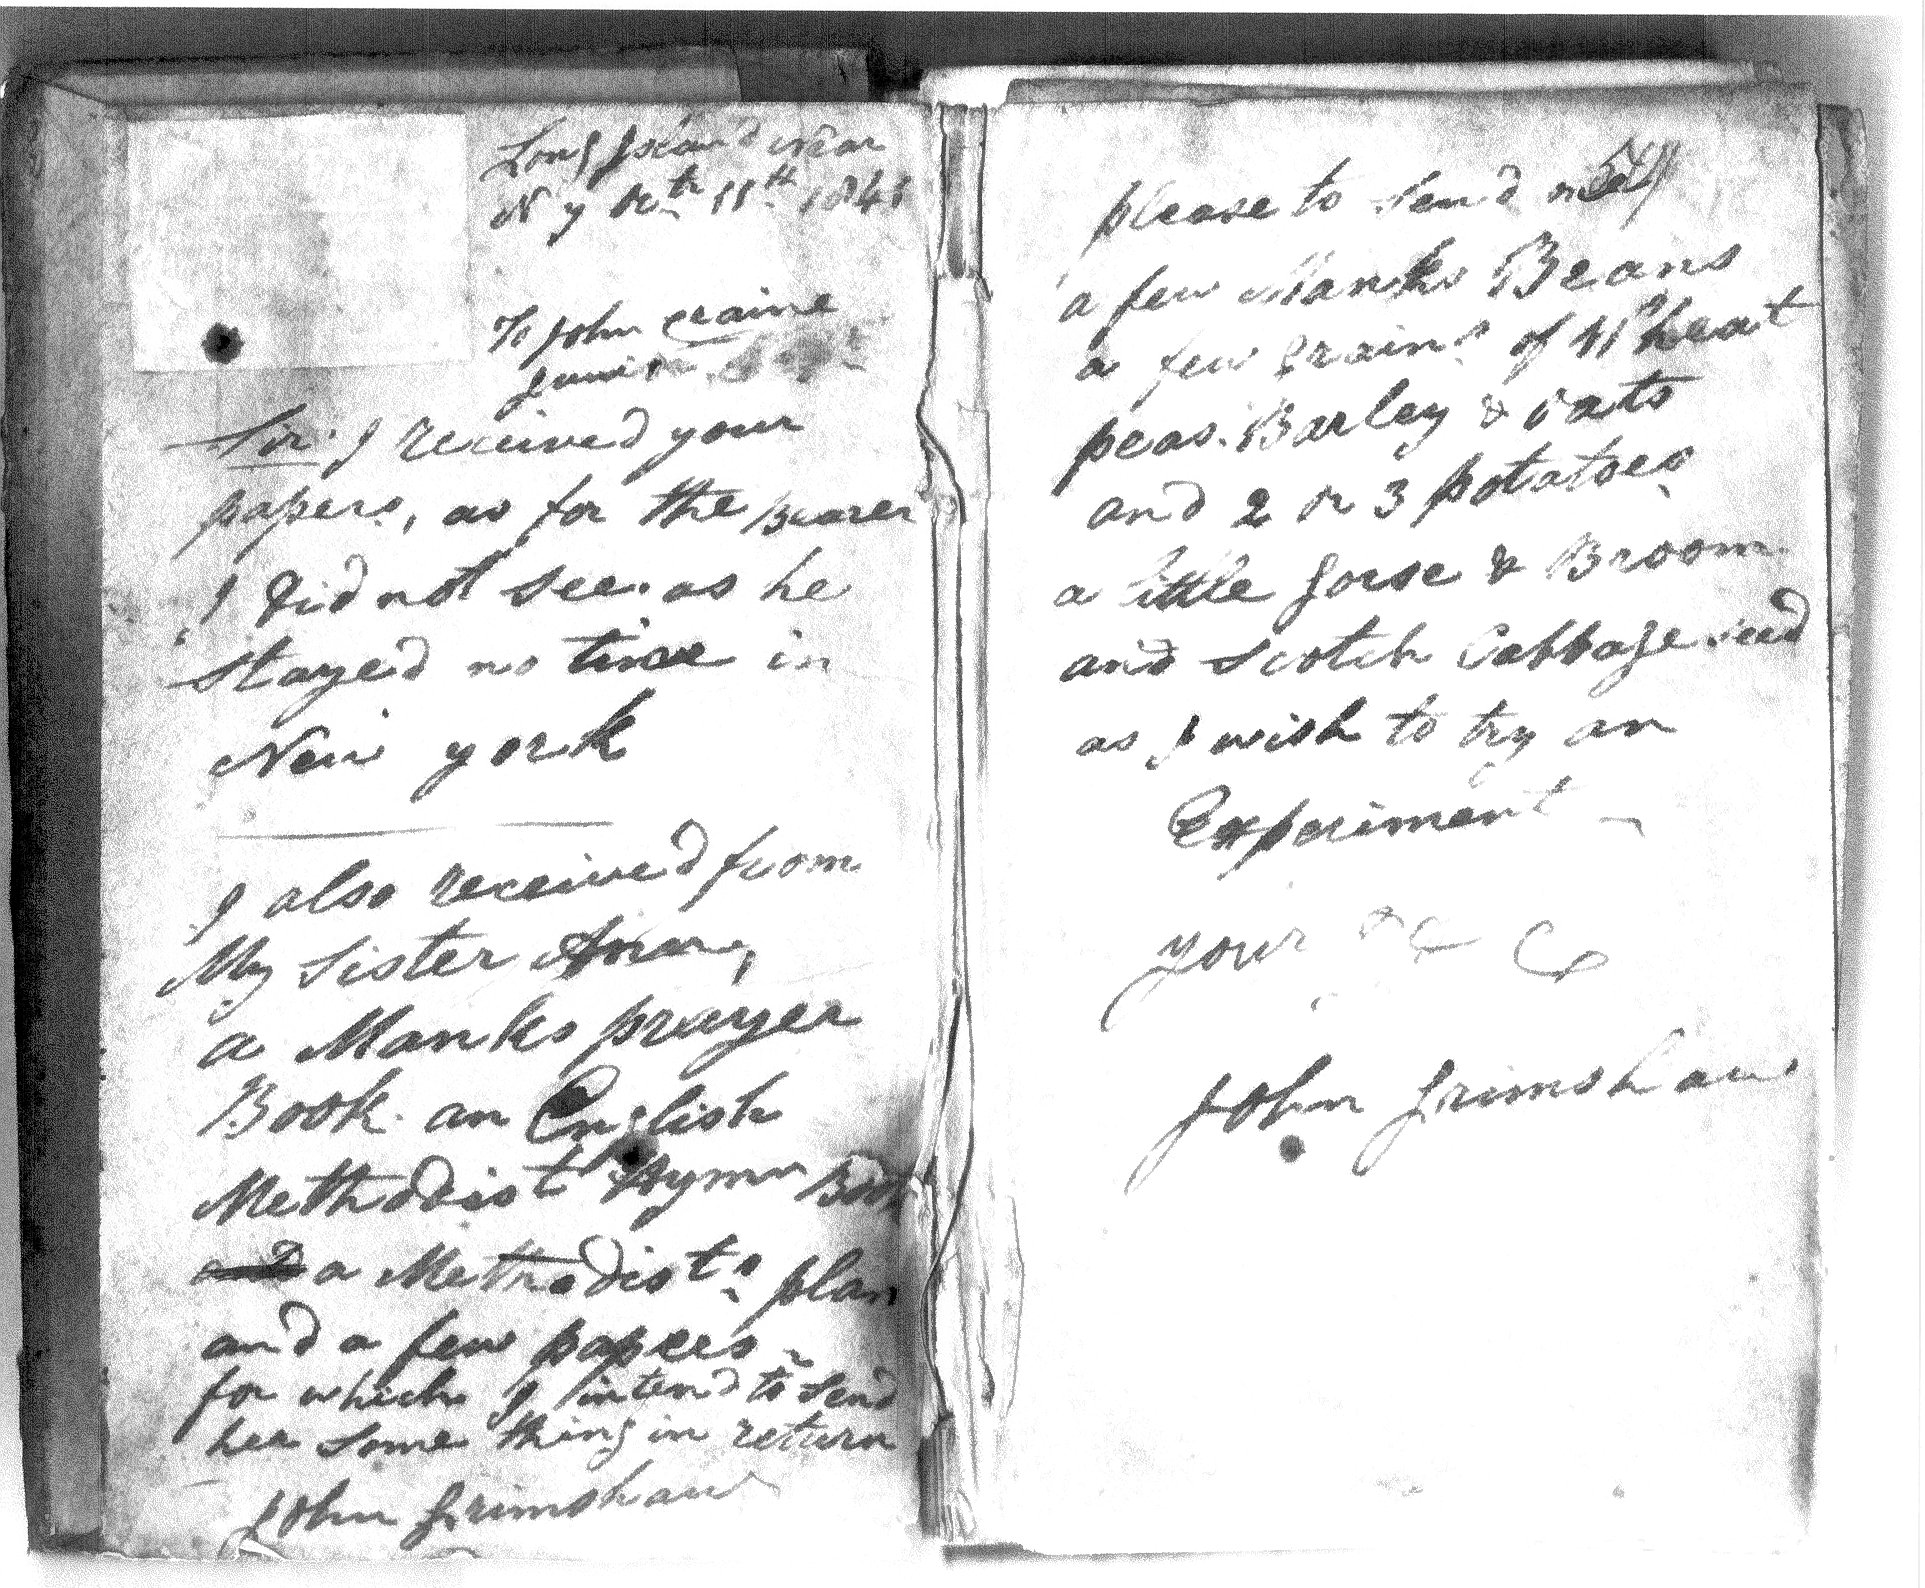 Long Island near
N y Octr 11th 1841
To John Craine
Junior
Sir. I received your
papers, as for the Bearer
I did not see. as he
stayed no time in
New york
I also received from
My Sister
a Manks prayer
Book. an English
Methodist Hymn Book
a Methodists plan
and a few papers
for which I intend to send
her some thing in return
John Grimshaw
please to send me
a few Manks Beans
a few Grains of Wheat
peas. Barley & oats
and 2 or 3 potatoes
a little Gorse & Broom
and Scotch Cabbage seed
as I wish to try an
Experiment
your &c
John Grimshaw